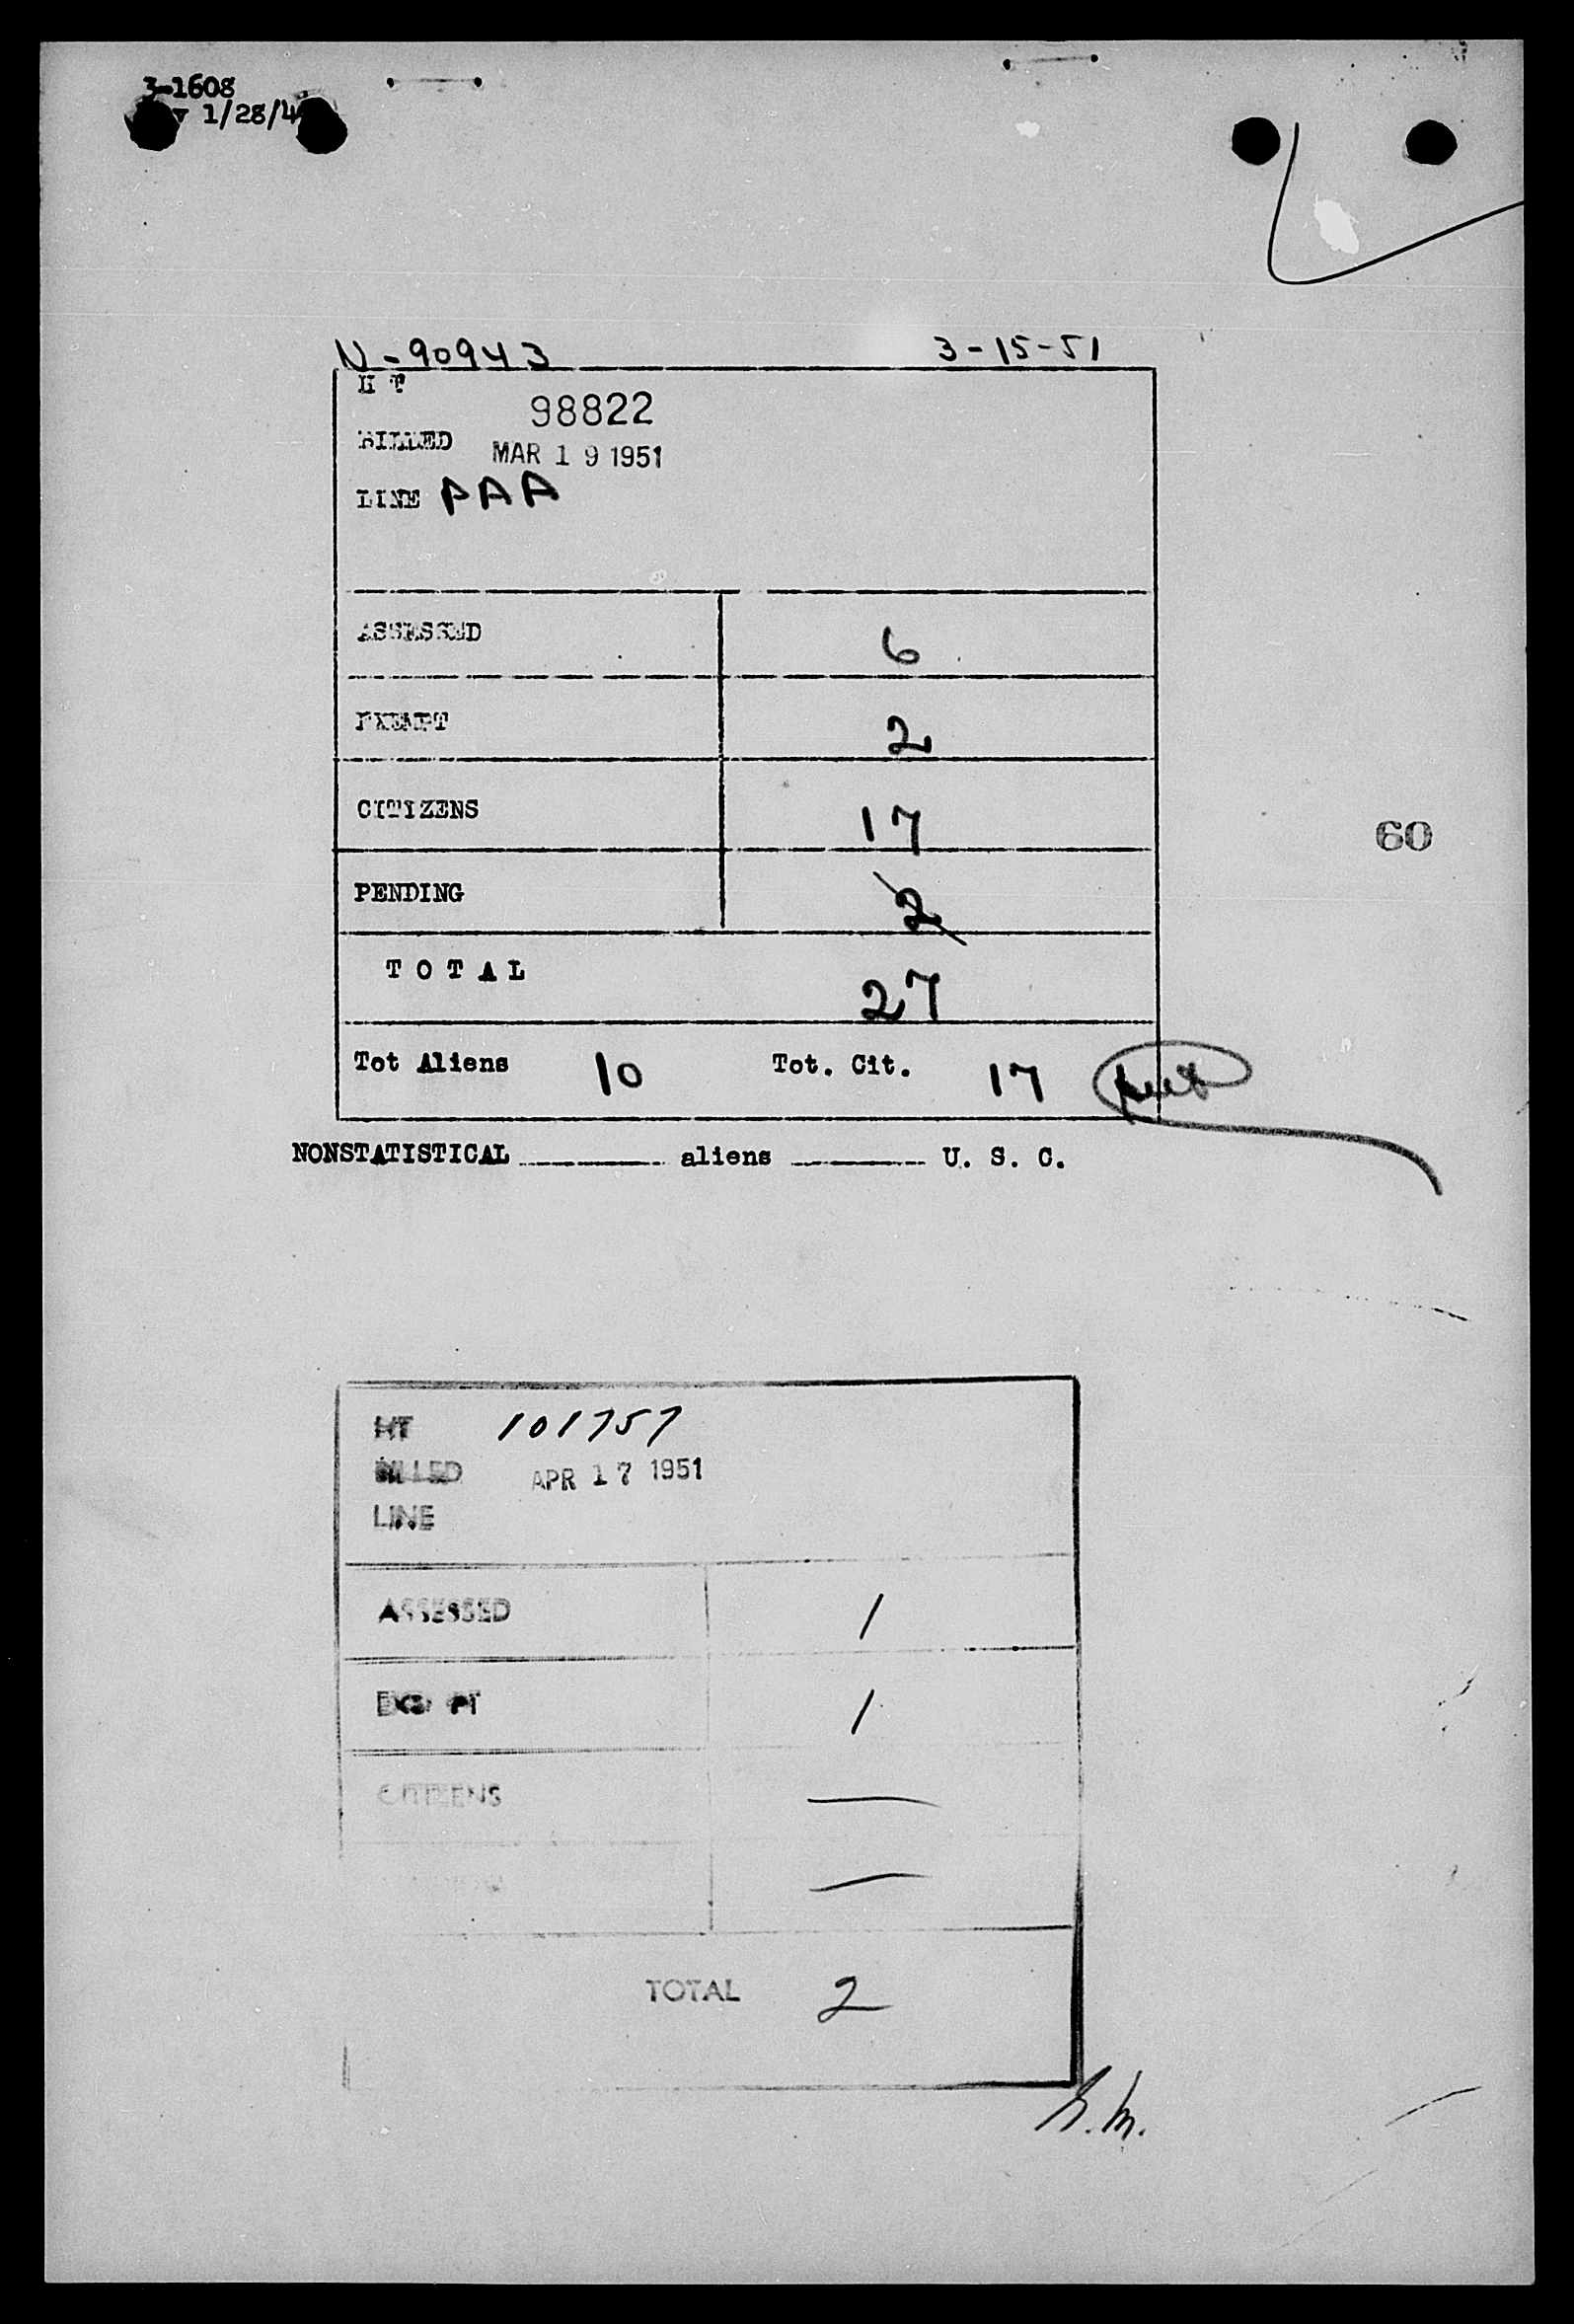 3-1608
1/28/4
N-90943 3-15-51
H T
98822
BILLED MAR 19 1951
LINE PAA
ASSESSED 6
EXEMPT 2
CITIZENS 17
60
PENDING 2
TOTAL 27
Tot Aliens 10 Tot. Cit. 17
NONSTATISTICAL aliens U. S. C.
HT 101757
BILLED APR 17 1951
LINE
ASSESSED 1
EXEMPT 1
CITIZENS —
—
TOTAL 2